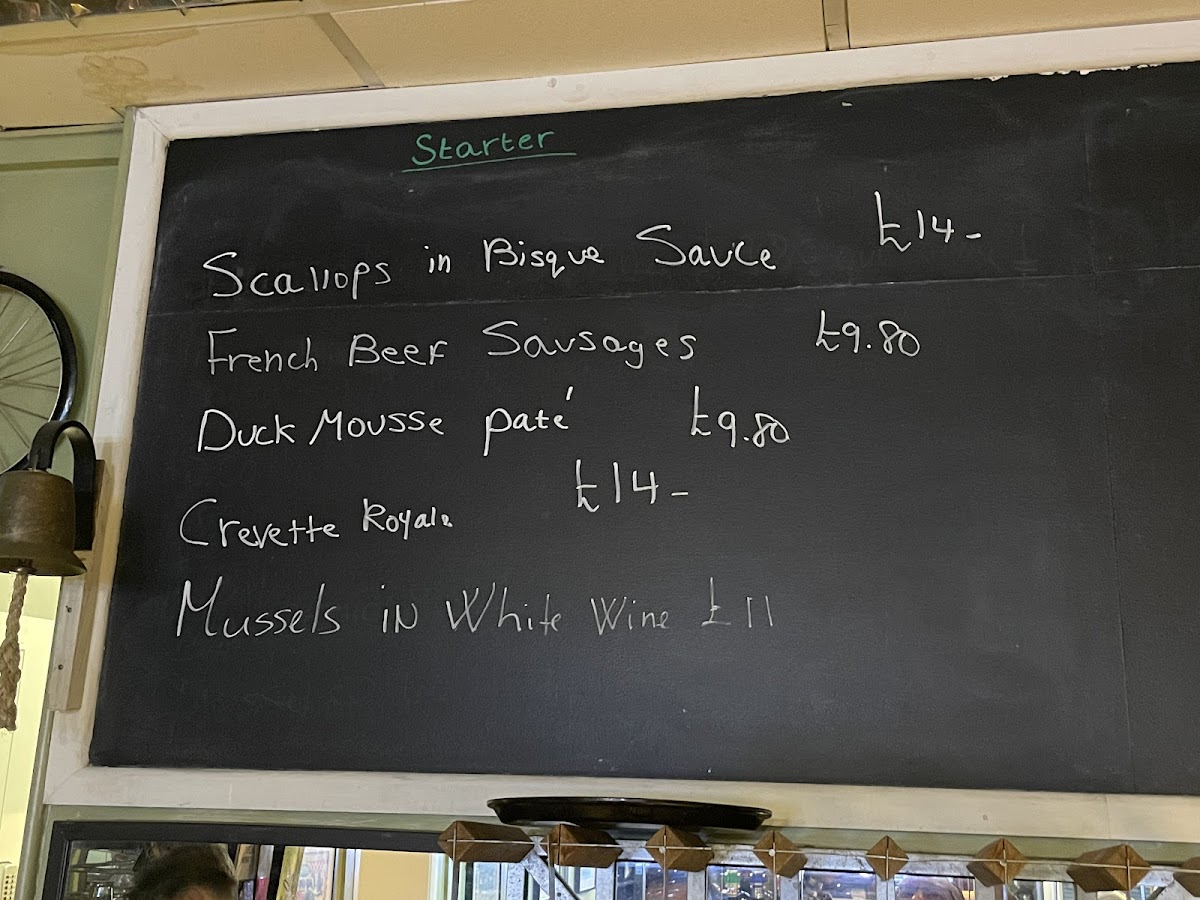 Starter
Scallops in Bisque Sauce £14-
French Beef Sausages £9.80
Duck Mousse paté £9.80
Crevette Royale £14-
Mussels in White Wine £11